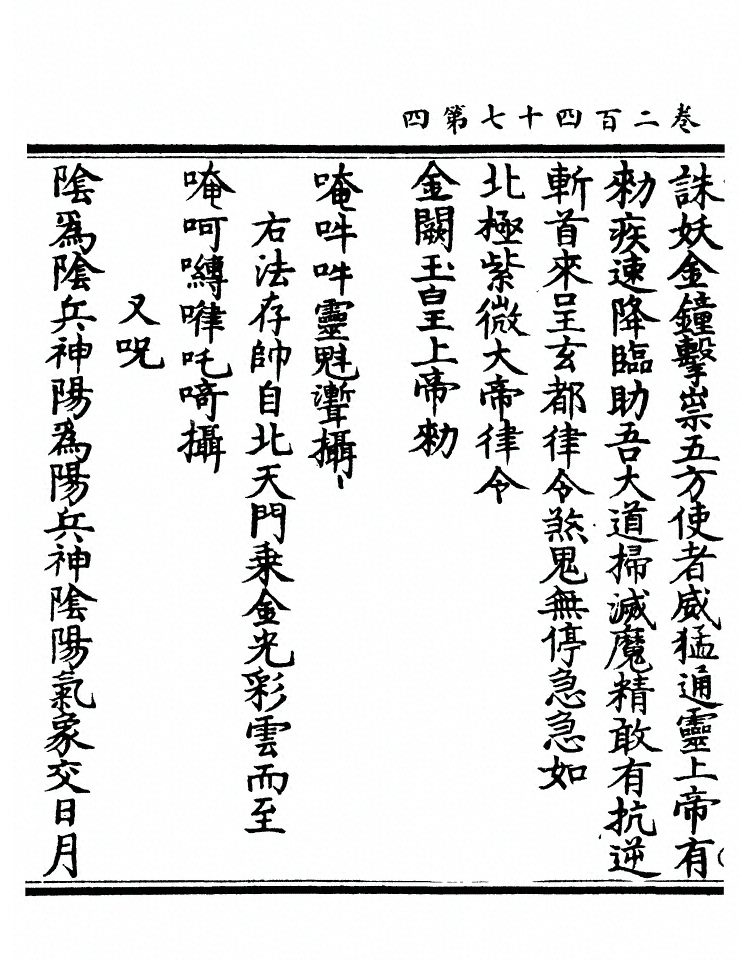 四第七十四百二卷
誅妖金鐘擊祟五方使者威猛通靈上帝有
勑疾速降臨助吾大道掃滅魔精敢有抗逆
斬首來呈玄都律令煞鬼無停急急如
北極紫微大帝律令
金闕玉皇上帝勑
唵吽吽靈魁䰠攝丶
右法存帥自北天門乗金光彩雲而至
唵呵嚩嘩吒㗎攝
又呪
陰為陰兵神陽為陽兵神陰陽氣象交日月